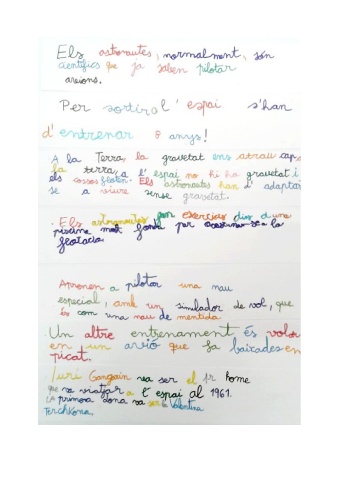 Els astronautes, normalment, són
cientifics que ja saben pilotar
avions.
Per sortir al l'espai s'han
d'entrenar 8 anys!
A la Terra, la gravetat ens atrau cap a
la terra, a l'espai no hi ha gravetat i
els cossos floten. Els astronautes han d'adaptar
se a viure sense gravetat.
. Els astronautes fan exercicis dis d'una
piscina molt fonda per
flotacio.
Aprenen a pilotar una nau
especial, amb un simulador de vol, que
és com una nau de mentida.
Un altre entrenament és volar
en un avió que fa baixades en
picat.
Iuri Gangarin va ser el 1r home
que va viatjar a l'espai al 1961.
La primera dona va ser la Valentina
Terchkona.